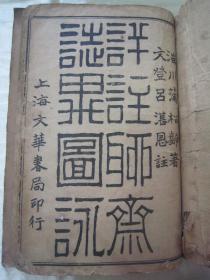 淄川蒲松齡著
文登呂湛恩註
詳註聊齋
誌異圖詠
上海文華書局印行